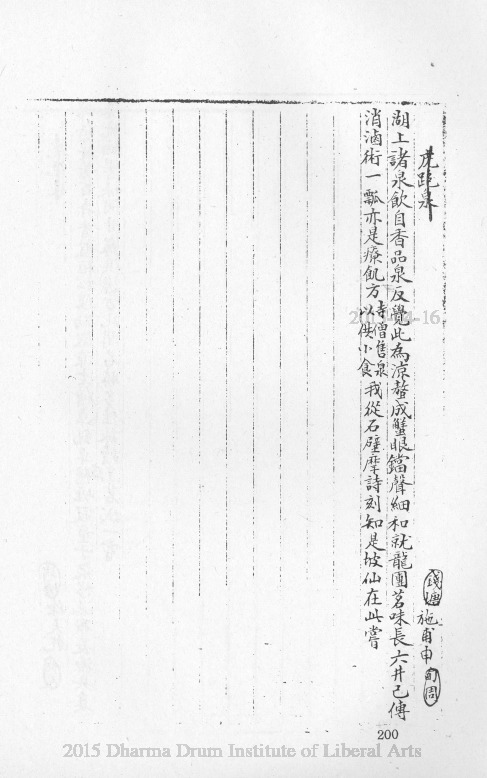 虎跑泉
錢塘 施甫申 旬周
湖上諸泉飲自香品泉反覺此為涼螯成蟹眼鐺聲細和就龍團茗味長六井已傳
消滷術一瓢亦是療飢方寺僧售泉以供小食我從石壁摩詩刻知是坡仙在此嘗
200
2015 Dharma Drum Institute of Liberal Arts